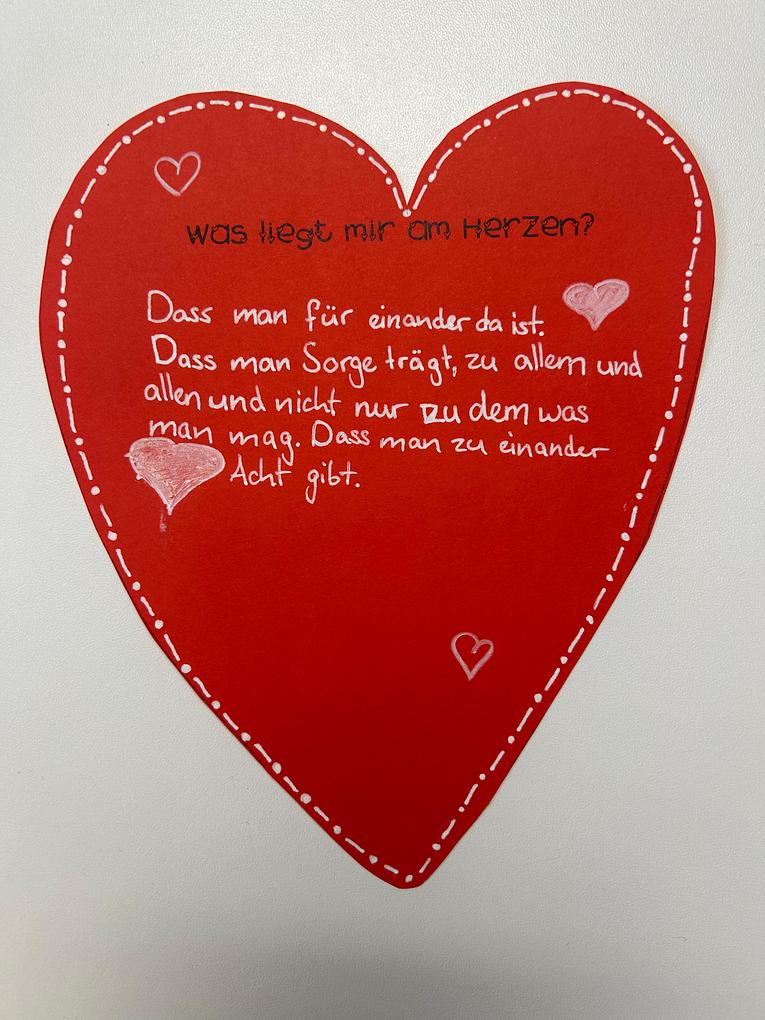 was liegt mir am Herzen?
Dass man für einander da ist.
Dass man Sorge trägt, zu allem und
allen und nicht nur zu dem was
man mag. Dass man zu einander
Acht gibt.